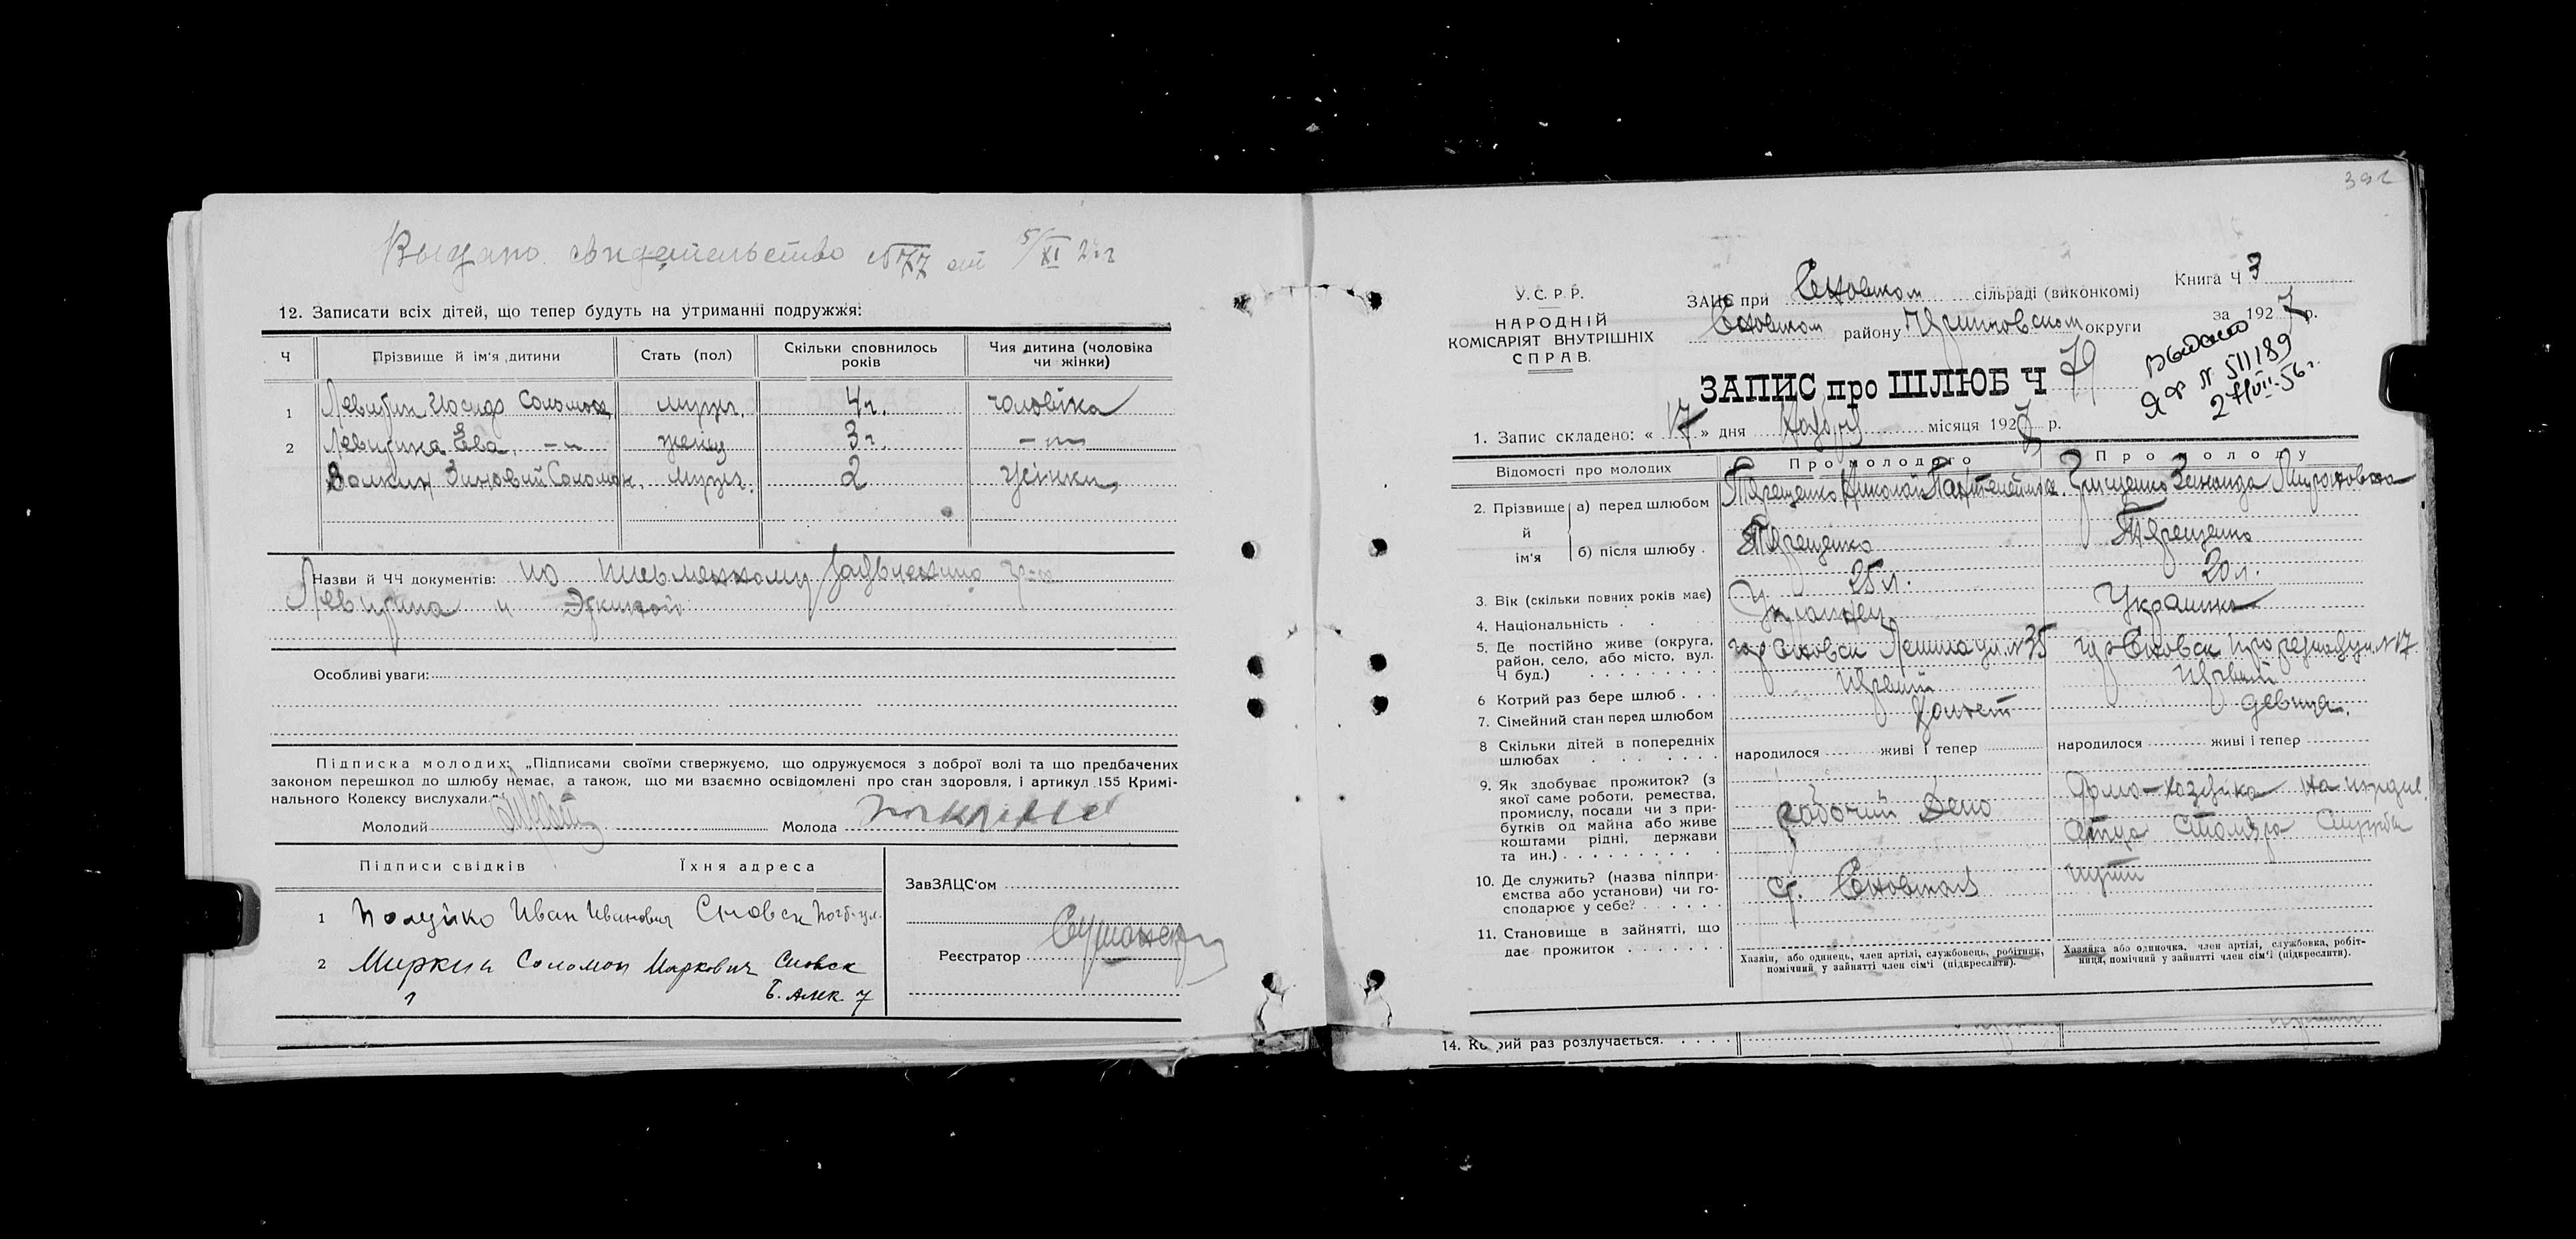 Выдано свидетельство № 77 от 5/XI 27 г
12. Записати всіх дітей, що тепер будуть на утриманні подружжя:
Ч Прізвище й ім'я дитини Стать (пол) Скільки сповнилось років Чия дитина (чоловіка чи жінки)
1 Левитин Иосиф Соломон. мужч. 4 г. чоловіка
2 Ева, —„— женщ 3 г. —„—
Зиновий Соломон. мужч. 2 жінки
Назви й ЧЧ документів: по письменному
и
Особливі уваги:
Підписка молодих: „Підписами своїми ствержуємо, що одружуємося з доброї волі та що предбачених
законом перешкод до шлюбу немає, а також, що ми взаємно освідомлені про стан здоровля, і артикул 155 Кримі-
нального Кодексу вислухали."
Молодий Молода
Підписи свідків Їхня адреса
ЗавЗАЦС'ом
1 Иван Иванович Сновск
Реєстратор
2 Миркин Соломон Маркович Сновск
Б. Алек 7
392
У. С. Р. Р.
НАРОДНІЙ
КОМІСАРІЯТ ВНУТРІШНІХ
СПРАВ.
ЗАЦС при Сновском сільраді (виконкомі) Книга Ч 3
Сновском району Черниговском округи за 1927 р.
ЗАПИС про ШЛЮБ Ч 79
Выдано
ЯФ № 511189
27/VII-56 г.
1. Запис складено: « 17 » дня Ноября місяця 1927 р.
Відомості про молодих Про молодого Про молоду
2. Прізвище й ім'я а) перед шлюбом Терещенко Николай Пантелеймон. Грищенко Зинаида Мироновна
б) після шлюбу . Терещенко Терещенко
3. Вік (скільки повних років має) 25 л. 20 л.
4. Національність . . Украинец Украинка
5. Де постійно живе (округа, район, село, або місто, вул. Ч буд.) гор Сновск Ленина ул. № 35 гор Сновск № 17
6 Котрий раз бере шлюб . . . первый первый
7. Сімейний стан перед шлюбом холост девица.
8 Скільки дітей в попередніх шлюбах народилося живі і тепер народилося живі і тепер
9. Як здобуває прожиток? (з якої саме роботи, ремества, промислу, посади чи з прибутків од майна або живе коштами рідні, держави та ин.) рабочий Депо Домо-хозяйка на иждив.
отца столяра службы
10. Де служить? (назва підприємства або установи) чи господарює у себе? ст. Сновская пути
11. Становище в зайнятті, що дає прожиток
Хазяін, або одинець, член артілі, службовець, робітник, помічний у зайнятті член сім'ї (підкреслити).
Хазяйка або одиночка, член артілі, службовка, робітниця, помічний у зайнятті член сім'ї (підкреслити).
14. Ко рий раз розлучається.